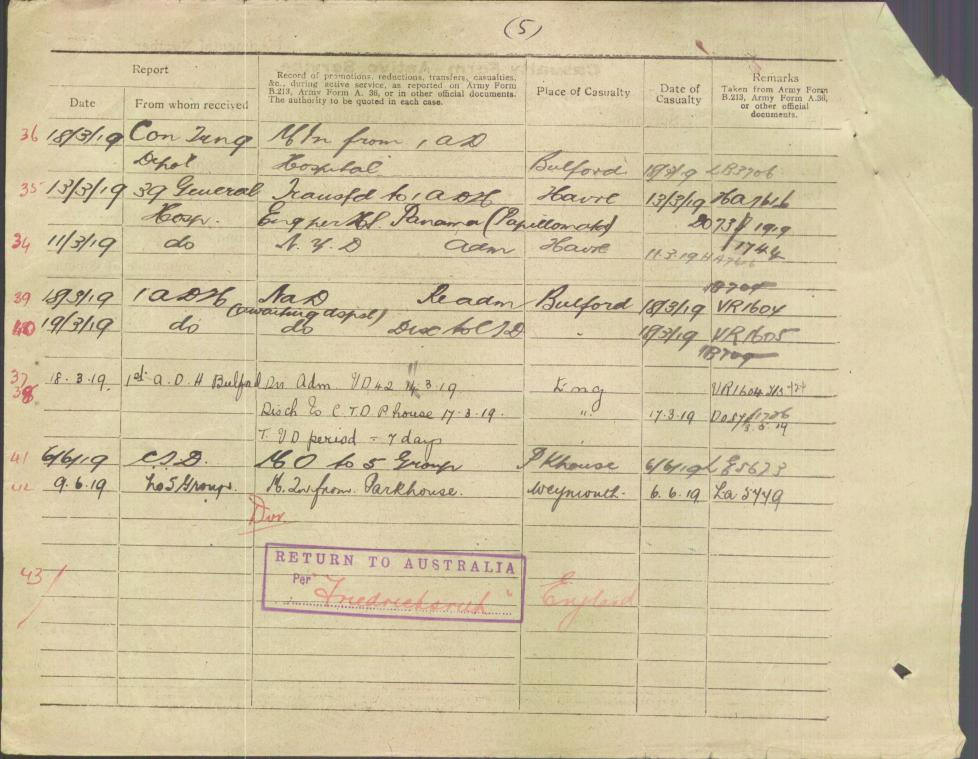 (5)
Report
Record of promotions, reductions, transfers, casualties, &c., during active service, as reported on Army Form B.213, Army Form A. 36, or in other official documents. The authority to be quoted in each case.
Place of Casualty
Date of Casualty
Remarks
Taken from Army Form B.213, Army Form A.36, or other official documents.
Date
From whom received
36 18/3/19 Con Trng M/In from 1 AD
Depot Hospital Bulford 18/3/19 LB3706
35 13/3/19 39 General Transfd to 1 ADH Havre 13/3/19 HA7616
Hosp. Eng per HS. Panama (Papillomata) 2073/1919
34 11/3/19 do N.Y.D adm Havre 11.3.19
39 18/3/19 1 ADH NaD Readm Bulford 18/3/19 VR1604
(awaiting dispsl)
40 19/3/19 do do Disc to CTD " 18/3/19 VR1605
37 18.3.19. 1st A.D.H Bulford Dn Adm. VD42 3.19 Eng VR1604
38 Disch to C.T.D P house 17.3.19. " 17.3.19
T. VD period = 7 days
41 6/6/19 C.T.D. MO to 5 Group Pkhouse 6/6/19 LE5623
42 9.6.19 No5 Group. M. In from Parkhouse. Weymouth. 6.6.19 La 5449
RETURN TO AUSTRALIA
43 Per "Friedrichsruh" England